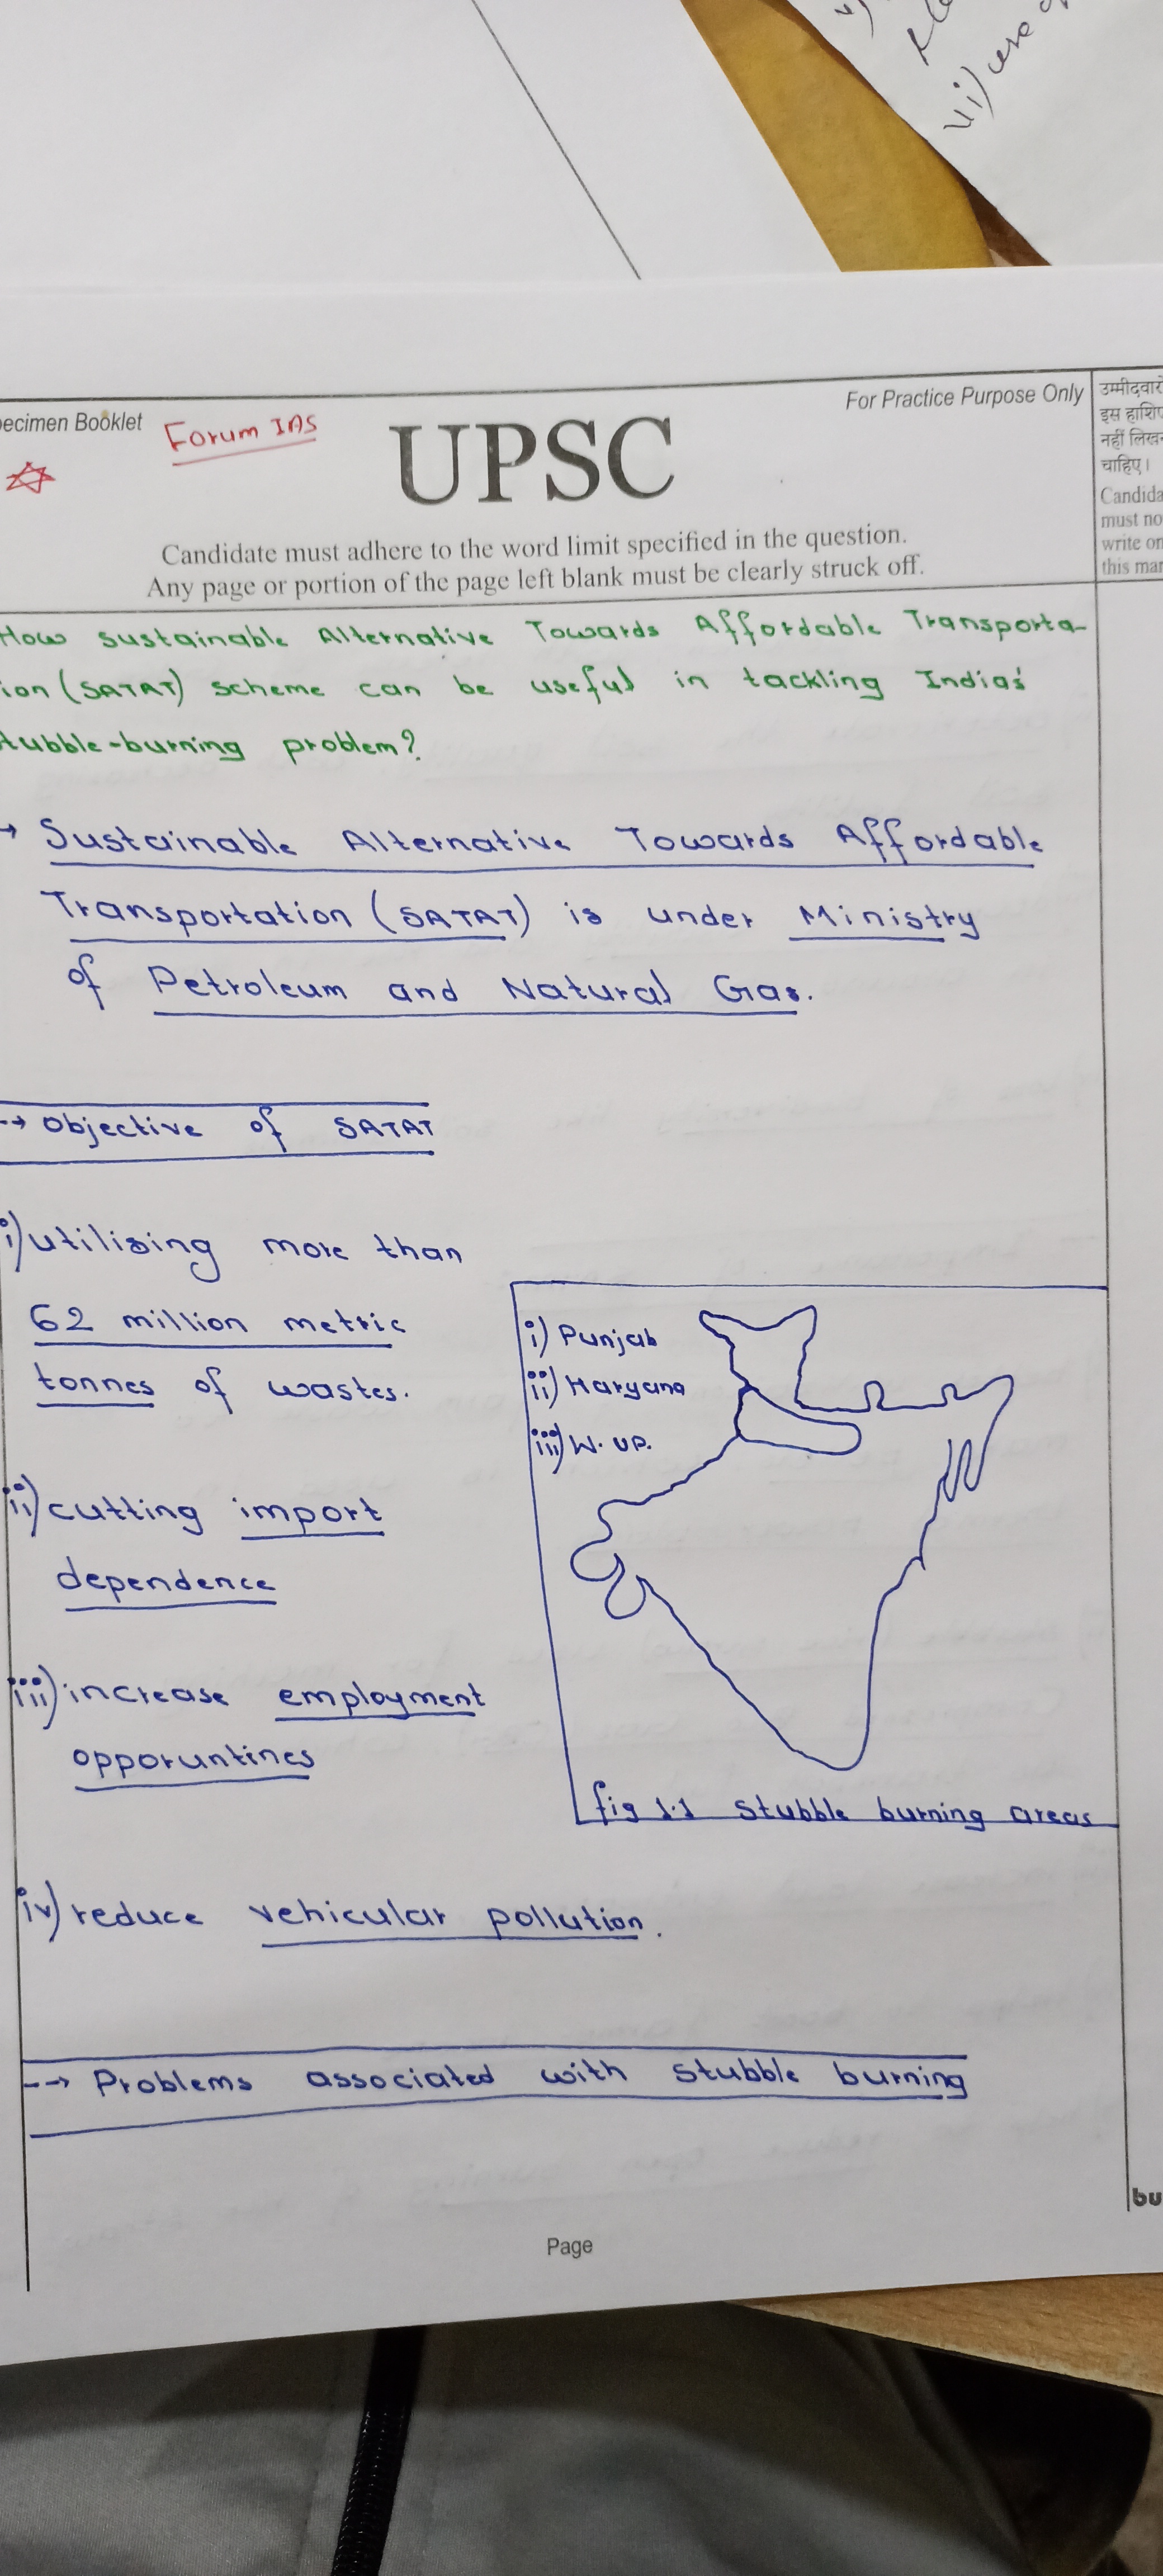 vi) use
ecimen Booklet
Forum IAS
UPSC
For Practice Purpose Only
उम्मीदवारों
इस हाशिए
नहीं लिखना
चाहिए।
Candida
must no
write on
this mar
Candidate must adhere to the word limit specified in the question.
Any page or portion of the page left blank must be clearly struck off.
How sustainable Alternative Towards Affordable Transporta-
ion (SATAT) scheme can be useful in tackling Indias'
tubble-burning problem?
→ Sustainable Alternative Towards Affordable
Transportation (SATAT) is under Ministry
of Petroleum and Natural Gas.
--> Objective of SATAT
i) utilising more than
62 million metric
tonnes of wastes.
ii) cutting import
dependence
iii) increase employment
opporuntines
iv) reduce vehicular pollution.
i) Punjab
ii) Haryana
iii) W. UP.
fig 1.1 Stubble burning areas
--> Problems associated with stubble burning
Page
bu